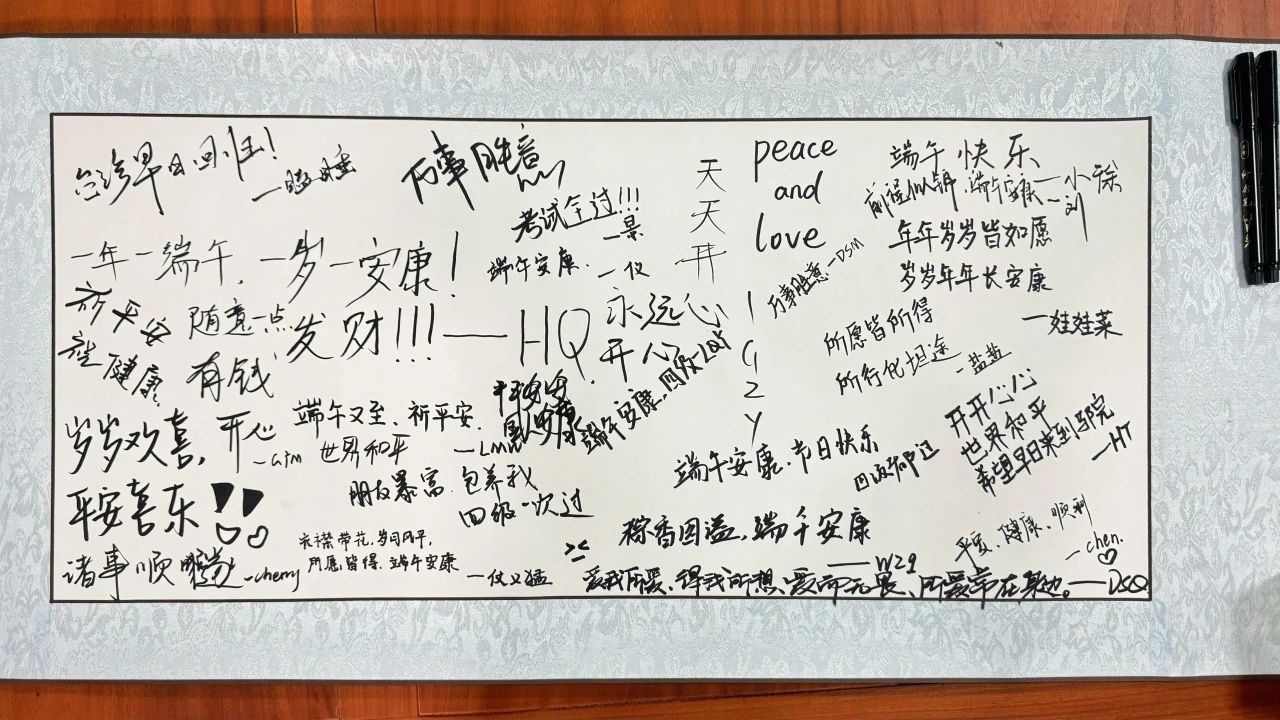 早日回归!
万事胜意
考试全过!!!
一景
端午安康.
一仪
天天开
永远心
开心
peace
and
love
万事胜意—DSM
I
G
Z
Y
端午快乐
前程似锦 端午安康—小徐
一刘
年年岁岁皆如愿
岁岁年年长安康
一娃娃菜
所愿皆所得
所行化坦途
一盐盐
一年一端午,一岁一安康!
祈平安
健康.
随意一点
有钱
发财!!!—HQ
岁岁欢喜,开心
—GTM
平安喜乐
诸事顺
—cherry
端午又至、祈平安.
世界和平
—LMW
平平安安
端午安康,四级
朋友暴富.包养我
四级一次过
衣襟带花,岁月风平,
所愿皆得、端午安康
—仪义猛
端午安康.节日快乐
开开心心
世界和平
希望早日来到
—HT
粽香四溢,端午安康
—WZg
平安、健康、顺利
—chen.
爱我所爱、得我所想、爱而无畏、所爱常在身边。—DSQ